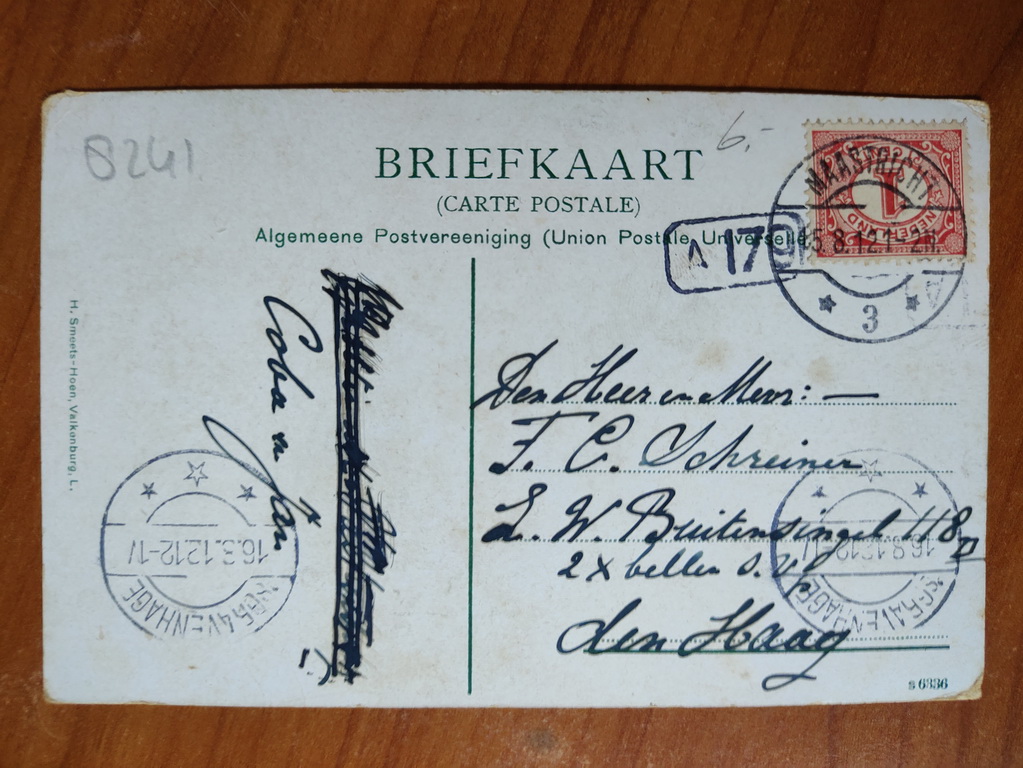 8241
6.-
BRIEFKAART
(CARTE POSTALE)
Algemeene Postvereeniging (Union Postale Universelle)
A 179
MAASTRICHT
15.8.12.1-2N.
3
1
NEDERLAND
Den Heer en Mevr: —
F. C. Schreiner
Z. W. Buitensingel 118
2 x bellen s.v.p.
den Haag
Coba en Jan
H. Smeets-Hoen, Valkenburg, L.
16.8.12.12-1V
'sGRAVENHAGE
16.8.12.12-1V
'sGRAVENHAGE
s 6336